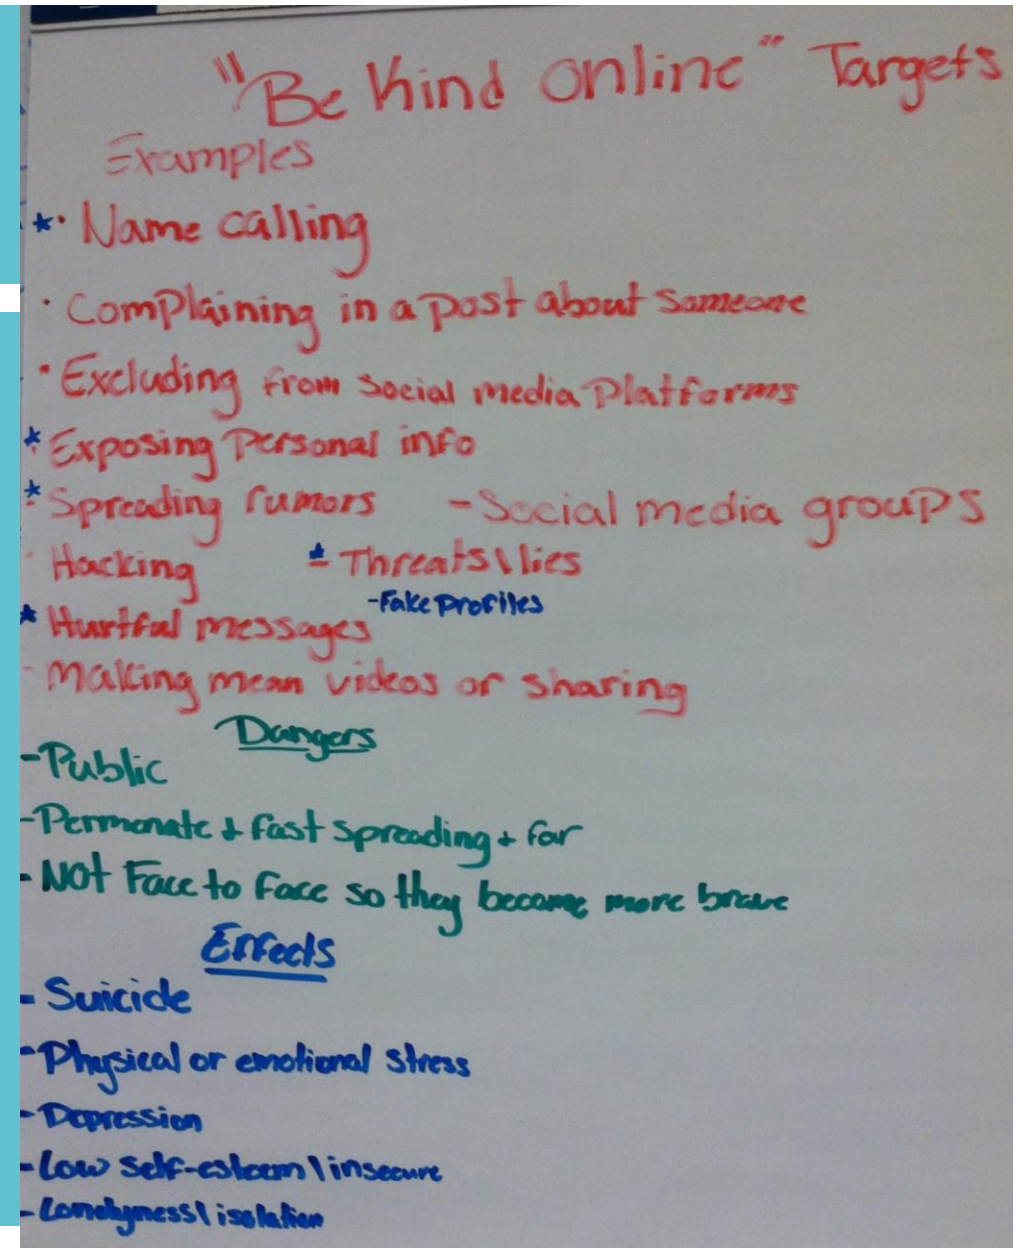 "Be Kind online" Targets
Examples
★• Name calling
• Complaining in a post about someone
• Excluding from social media Platforms
★ Exposing Personal info
★ Spreading rumors - Social media groups
• Hacking ★ Threats\lies
-Fake profiles
★ Hurtful messages
- Making mean videos or sharing
Dangers
- Public
- Permanate + fast spreading + far
- Not Face to Face so they become more brave
Effects
- Suicide
- Physical or emotional stress
- Depression
- Low self-esteem \ insecure
- Lonelyness \ isolation